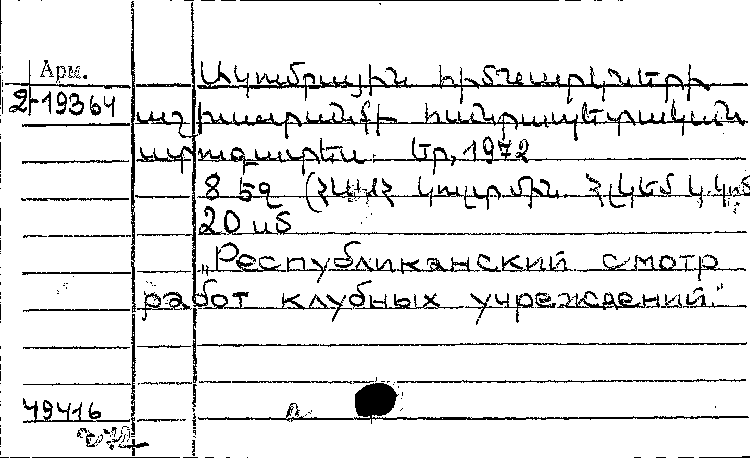 Арм.
2-19364
Ակումբային հիմնարկների
աշխատանքի հանրապետական
արտգարեն. Եր, 1972
8 էջ (ՀՍՍՀ կուլտ. մին. ՀԼԿԵՄ Կ.կոմ
20 սմ
„Республиканский смотр
работ клубных учреждений."
49416